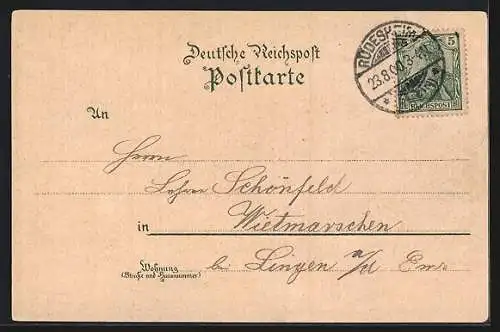 Deutsche Reichspost
Postkarte
RÜDESHEIM
23.8.00
5
REICHSPOST
An
Herrn
Lehrer Schönfeld
in Wietmarschen
Wohnung
(Straße und Hausnummer)
bei Lingen a/d Ems